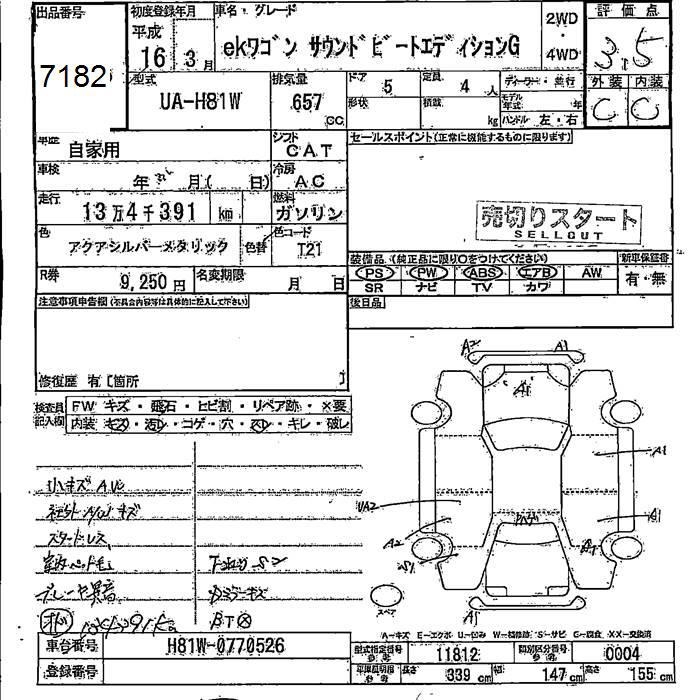 出品番号
7182
初度登録年月
平成
16年3月
車名・グレード
ekワゴン サウンドビートエディションG
2WD
・
4WD
評価点
3.5
外装 内装
C C
型式
UA-H81W
排気量
657 CC
ドア 5
定員 4人
形状
積載 kg
ディーラー・並行
モデル年式 年
ハンドル 左・右
車歴
自家用
シフト
CAT
車検
年 月( 日)
冷房
AC
走行
13万4千391 km
燃料
ガソリン
色
アクアシルバーメタリック
色替
色コード
T21
R券
9,250円
名変期限
月 日
セールスポイント(正常に機能するものに限ります)
売切りスタート
SELLOUT
装備品(純正品に限り○をつけてください)
新車保証書
PS PW ABS エアB AW
SR ナビ TV カワ
有・無
後日品
注意事項申告欄(不具合内容等は具体的に記入して下さい)
修復歴 有[箇所 ]
検査員記入欄
FW キズ・飛石・ヒビ割・リペア跡・×要
内装 キズ・汚レ・コゲ・穴・スレ・キレ・破レ
小キズ A.U
スタッドレス
BT⊗
A2 A1
A1
A1
UA2
A2
A1
S1
A1
スペア
A1
A-キズ E-エクボ U-凹み W-補修跡 S-サビ C-腐食 XX-交換済
車台番号
H81W-0770526
登録番号
型式指定番号 参考 11812
類別区分番号 参考 0004
長さ 339cm
幅 147cm
高さ 155cm